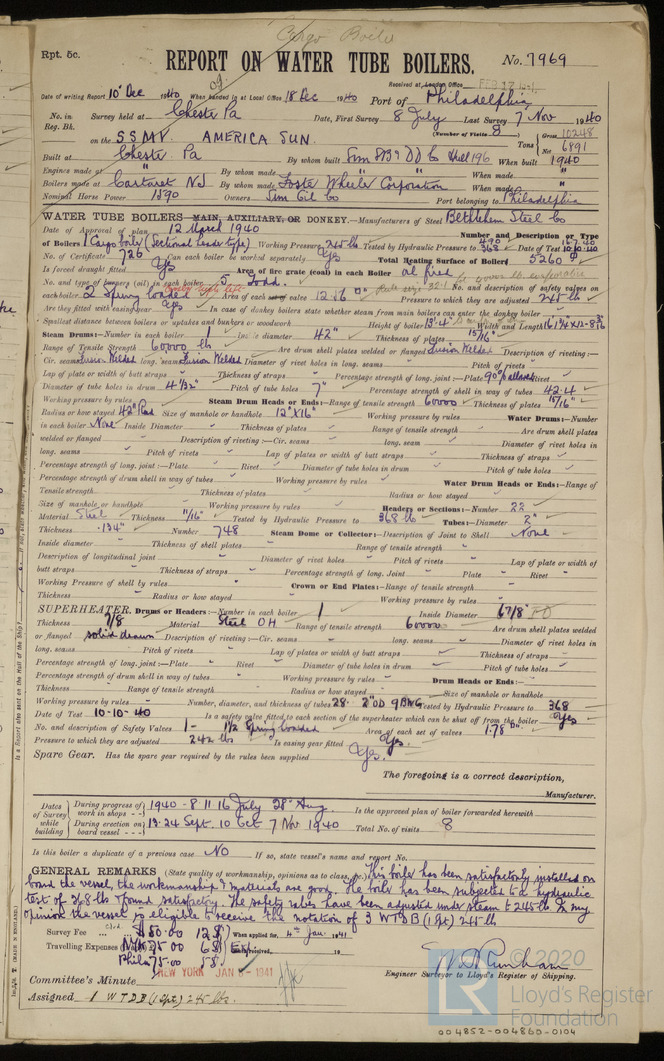 Cargo Boiler
Rpt. 5c.
REPORT ON WATER TUBE BOILERS.
No. 7969
Received at London Office
Date of writing Report 10 Dec 1940 When handed in at Local Office 18 Dec 1940 Port of Philadelphia
No. in Reg. Bk. Survey held at Chester Pa Date, First Survey 8 July Last Survey 7 Nov 1940
(Number of Visits 8)
on the SSMV AMERICA SUN. Tons Gross 10248 Net 6891
Built at Chester Pa By whom built Sun SB & DD Co Hull 196 When built 1940
Engines made at " By whom made " When made "
Boilers made at Cartaret NJ By whom made Foster Wheeler Corporation When made "
Nominal Horse Power 1590 Owners Sun Oil Co Port belonging to Philadelphia
WATER TUBE BOILERS—MAIN, AUXILIARY, OR DONKEY.—Manufacturers of Steel Bethlehem Steel Co
Date of Approval of plan 12 March 1940 Number and Description or Type
of Boilers 1 Cargo boiler (Sectional header type) Working Pressure 245 lb Tested by Hydraulic Pressure to 368 Date of Test 10-10-40
No. of Certificate 726 Can each boiler be worked separately Yes Total Heating Surface of Boilers 5260
Is forced draught fitted Yes Area of fire grate (coal) in each Boiler oil fired
No. and type of burners (oil) in each boiler 5 Todd. No. and description of safety valves on
each boiler 2 Spring loaded Area of each set of valves 12.16 Pressure to which they are adjusted 245 lb
Are they fitted with easing gear Yes In case of donkey boilers state whether steam from main boilers can enter the donkey boiler
Smallest distance between boilers or uptakes and bunkers or woodwork Height of boiler 13'-4" Width and Length
Steam Drums:—Number in each boiler 1 Inside diameter 42" Thickness of plates 15/16"
Range of Tensile Strength 60000 lb Are drum shell plates welded or flanged Fusion Welded Description of riveting:—
Cir. seams Fusion Welded long. seams Fusion Welded Diameter of rivet holes in long. seams Pitch of rivets
Lap of plate or width of butt straps Thickness of straps Percentage strength of long. joint:—Plate 90% allowed Rivet
Diameter of tube holes in drum 4 1/32" Pitch of tube holes 7" Percentage strength of shell in way of tubes 42.4
Working pressure by rules Steam Drum Heads or Ends:—Range of tensile strength 60000 Thickness of plates 15/16"
Radius or how stayed 42" Rad Size of manhole or handhole 12"X16" Working pressure by rules Water Drums:—Number
in each boiler None Inside Diameter Thickness of plates Range of tensile strength Are drum shell plates
welded or flanged Description of riveting:—Cir. seams long. seam Diameter of rivet holes in
long. seams Pitch of rivets Lap of plates or width of butt straps Thickness of straps
Percentage strength of long. joint:—Plate Rivet Diameter of tube holes in drum Pitch of tube holes
Percentage strength of drum shell in way of tubes Working pressure by rules Water Drum Heads or Ends:—Range of
Tensile strength Thickness of plates Radius or how stayed
Size of manhole or handhole Working pressure by rules Headers or Sections:—Number 22
Material Steel Thickness 11/16" Tested by Hydraulic Pressure to 368 lb Tubes:—Diameter 2"
Thickness .134" Number 748 Steam Dome or Collector:—Description of Joint to Shell None
Inside diameter Thickness of shell plates Range of tensile strength
Description of longitudinal joint Diameter of rivet holes Pitch of rivets Lap of plate or width of
butt straps Thickness of straps Percentage strength of long. Joint Plate Rivet
Working Pressure of shell by rules Crown or End Plates:—Range of tensile strength
Thickness Radius or how stayed Working pressure by rules
SUPERHEATER. Drums or Headers:—Number in each boiler 1 Inside Diameter 6 7/8"
Thickness 7/8 Material Steel OH Range of tensile strength 60000 Are drum shell plates welded
or flanged solid drawn Description of riveting:—Cir. seams long. seams Diameter of rivet holes in
long. seams Pitch of rivets Lap of plates or width of butt straps Thickness of straps
Percentage strength of long. joint:—Plate Rivet Diameter of tube holes in drum Pitch of tube holes
Percentage strength of drum shell in way of tubes Working pressure by rules Drum Heads or Ends:—
Thickness Range of tensile strength Radius or how stayed Size of manhole or handhole
Working pressure by rules Number, diameter, and thickness of tubes 28. 2"OD 9BWG Tested by Hydraulic Pressure to 368
Date of Test 10-10-40 Is a safety valve fitted to each section of the superheater which can be shut off from the boiler Yes
No. and description of Safety Valves 1 - 1 1/2 Spring loaded Area of each set of valves 1.78
Pressure to which they are adjusted 242 lbs Is easing gear fitted Yes.
Spare Gear. Has the spare gear required by the rules been supplied Yes.
The foregoing is a correct description,
Manufacturer.
Dates of Survey while building
During progress of work in shops 1940 - 8.11.16 July 28 Aug
Is the approved plan of boiler forwarded herewith
During erection on board vessel 13.24 Sept. 10 Oct 7 Nov 1940 Total No. of visits 8
Is this boiler a duplicate of a previous case NO If so, state vessel's name and report No.
GENERAL REMARKS (State quality of workmanship, opinions as to class, &c.) This boiler has been satisfactorily installed on
board the vessel, the workmanship & materials are good. The boiler has been subjected to a hydraulic
test of 368 lbs & found satisfactory. The safety valves have been adjusted under steam to 245 lb. In my
opinion the vessel is eligible to receive the notation of 3 WTDB (1 Spt) 245 lb
Survey Fee $50.00 When applied for, 4th Jan. 1941
Travelling Expenses
NEW YORK JAN 1941
Engineer Surveyor to Lloyd's Register of Shipping.
Committee's Minute
Assigned 1 WTDB (1 Spt.) 245 lbs.
© 2020
LR
Lloyd's Register
Foundation
004852-004860-0104